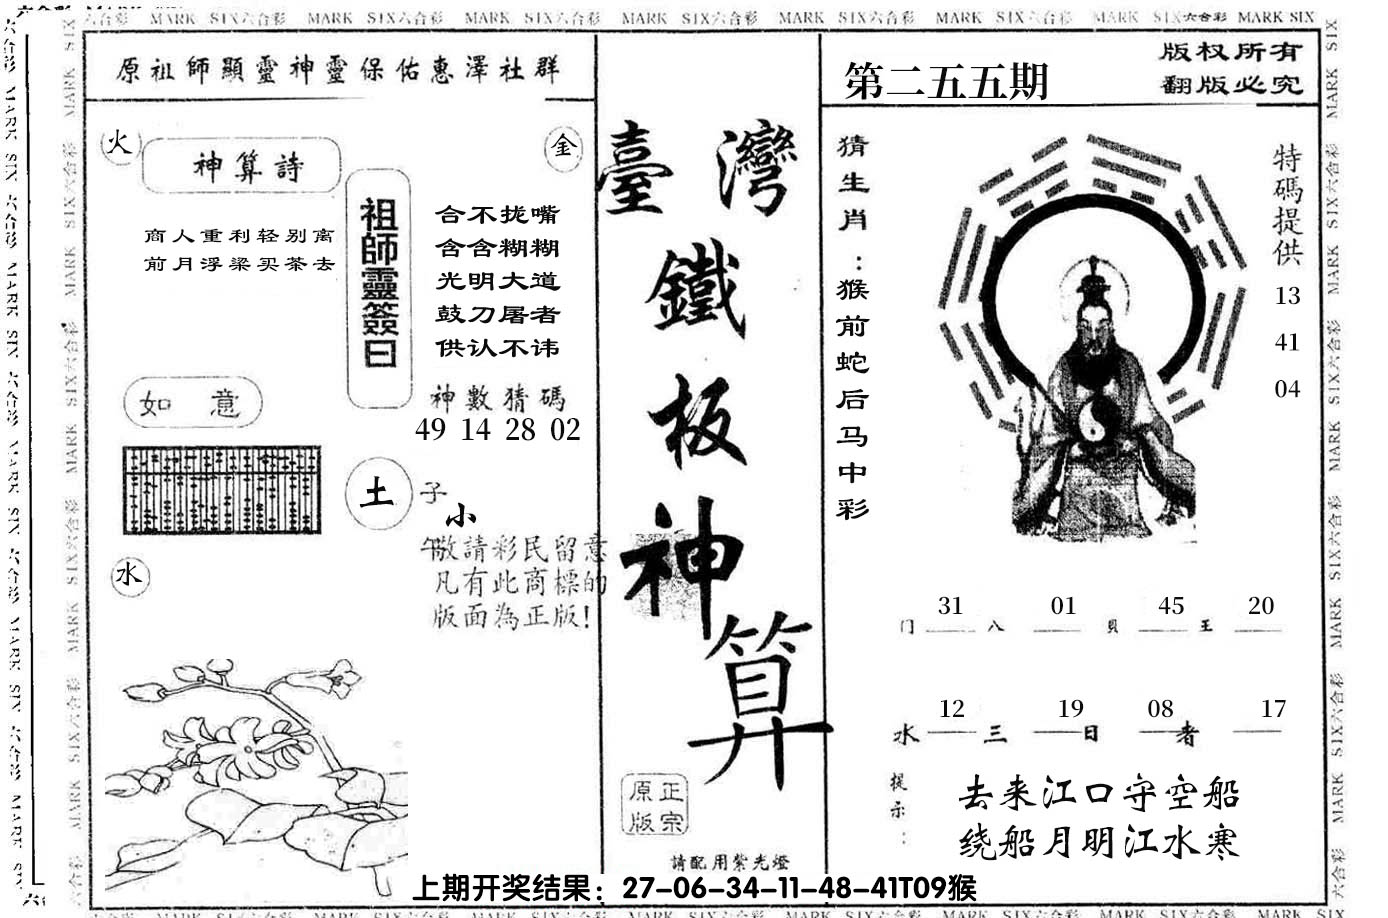 MARK SIX六合彩 MARK SIX六合彩 MARK SIX六合彩 MARK SIX六合彩 MARK SIX六合彩 MARK SIX六合彩 MARK SIX六合彩 MARK SIX
原祖師顯靈神靈保佑惠澤社群
火
神算詩
金
商人重利轻别离
前月浮梁买茶去
祖師靈簽曰
合不拢嘴
含含糊糊
光明大道
鼓刀屠者
供认不讳
神數猜碼
49 14 28 02
如意
土
子
小
午
敬請彩民留意
凡有此商標的
版面為正版!
水
臺灣
鐵
板
神
算
正宗
原版
請配用紫光燈
第二五五期
版权所有
翻版必究
猜生肖:猴前蛇后马中彩
特碼提供
13
41
04
31 01 45 20
门 八 贝 王
12 19 08 17
水 三 日 者
提示:
去来江口守空船
绕船月明江水寒
上期开奖结果：27-06-34-11-48-41T09猴